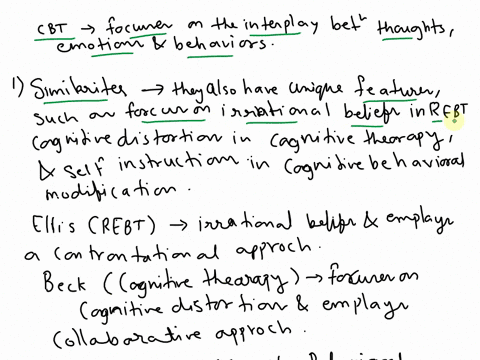 CBT → focuses on the interplay betⁿ thoughts,
emotions & behaviors.
1) Similarites → they also have unique features,
such as focus on irrational beliefs in REBT
cognitive distortion in cognitive thearapy,
& self instruction in cognitive behavioral
modification.
Ellis (REBT) → irrational beliefs & employs
a controntational approch.
Beck (Cognitive thearapy) → focuses on
cognitive distortion & employs
collaborative approch.